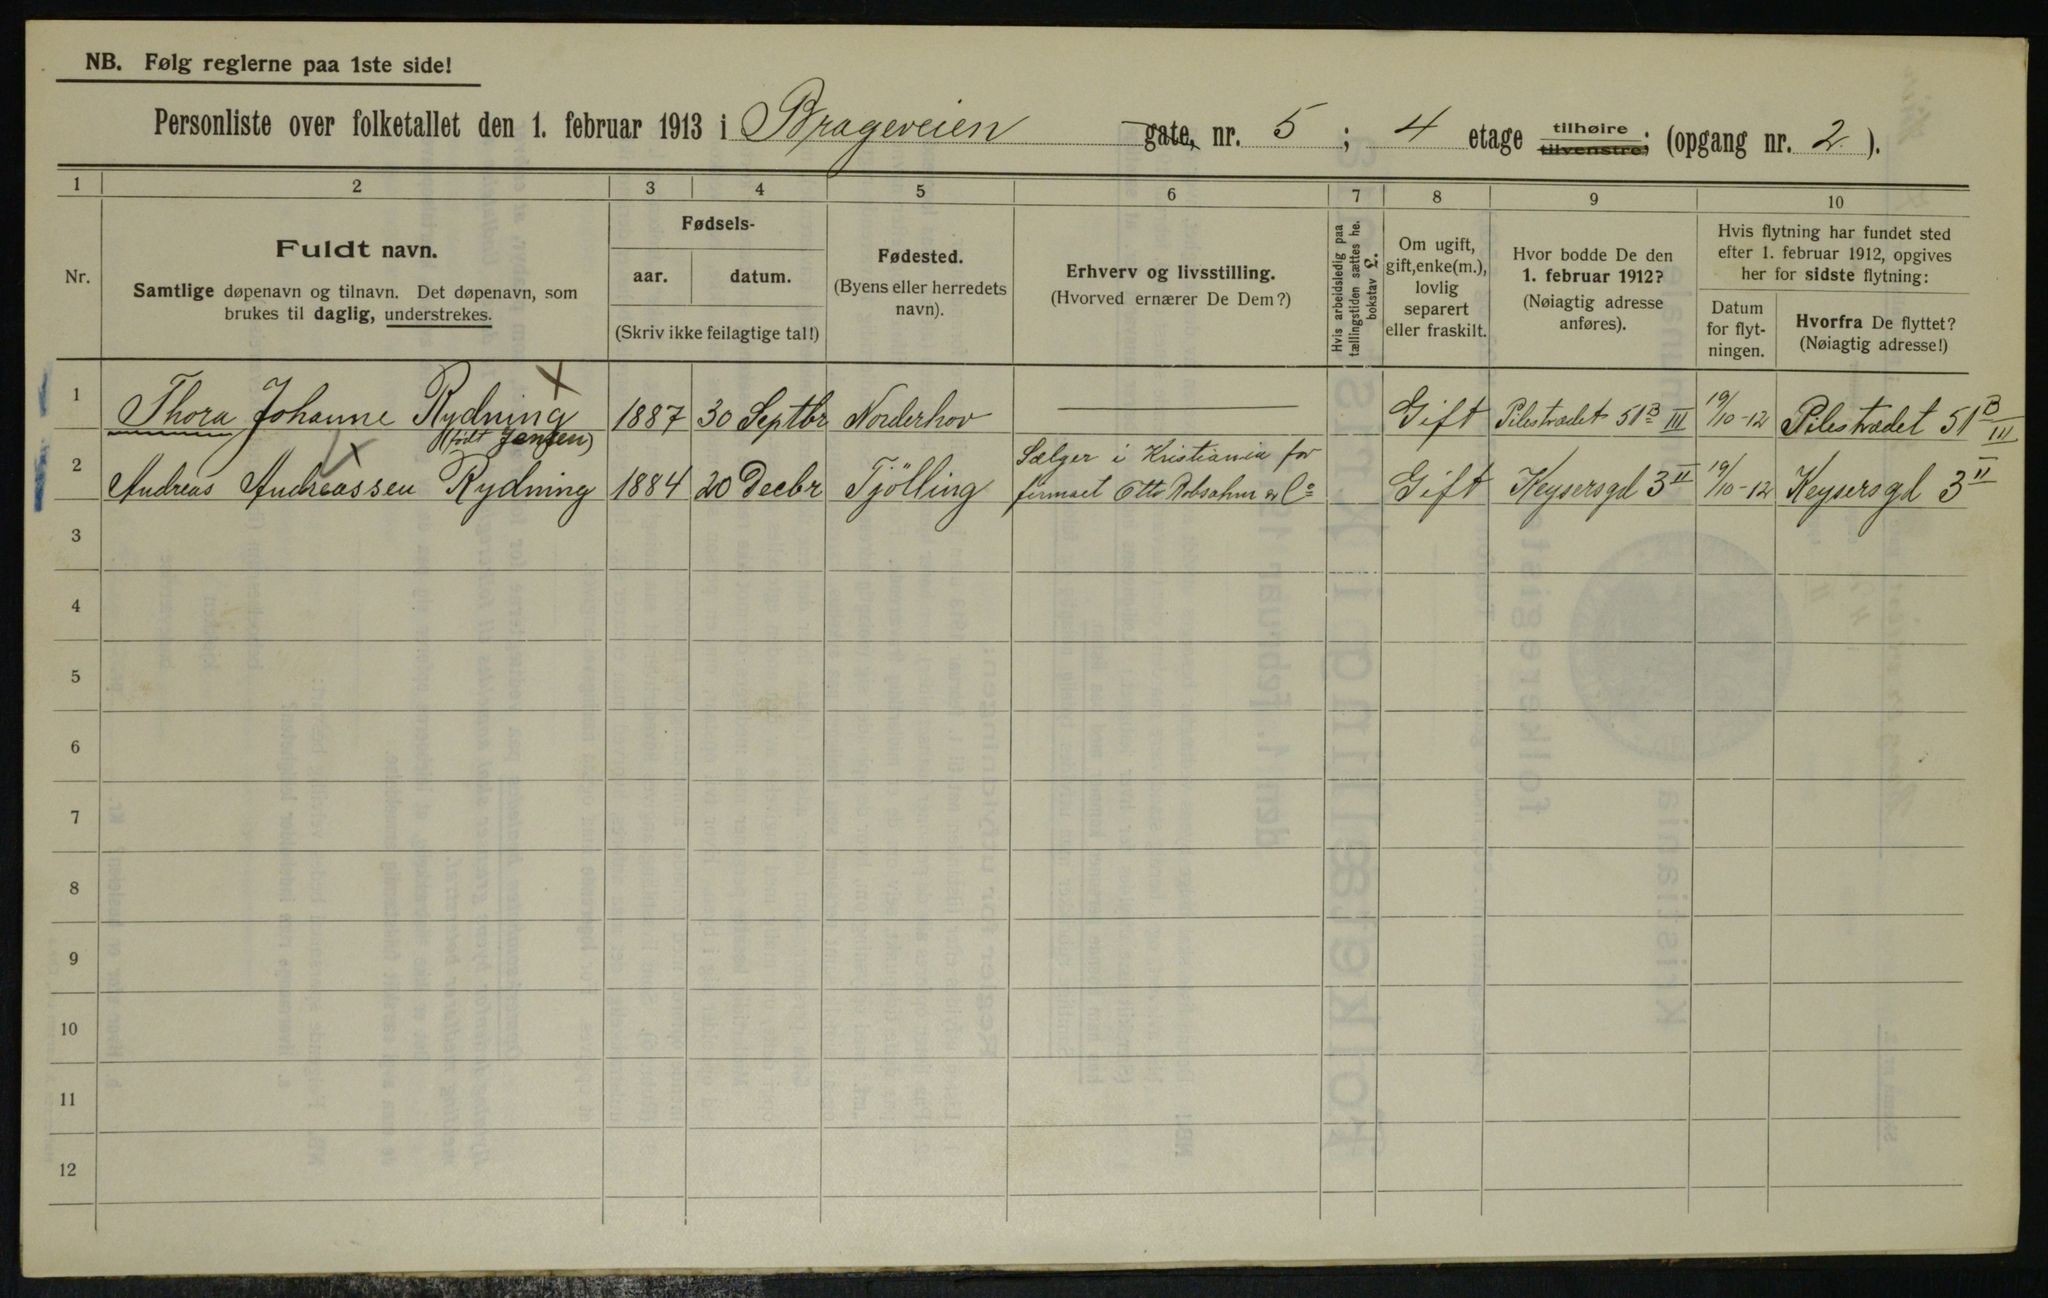 NB. Følg reglerne paa 1ste side!
Personliste over folketallet den 1. februar 1913 i Brageveien gate, nr. 5 ; 4 etage tilhøire tilvenstre; (opgang nr. 2 ).
1 2 3 4 5 6 7 8 9 10
Nr.
Fuldt navn.
Samtlige døpenavn og tilnavn. Det døpenavn, som
brukes til daglig, understrekes.
Fødsels-
aar. datum.
(Skriv ikke feilagtige tal!)
Fødested.
(Byens eller herredets
navn).
Erhverv og livsstilling.
(Hvorved ernærer De Dem?)
Hvis arbeidsledig paa
tællingstiden sættes he.
bokstav L.
Om ugift,
gift,enke(m.),
lovlig
separert
eller fraskilt.
Hvor bodde De den
1. februar 1912?
(Nøiagtig adresse
anføres).
Hvis flytning har fundet sted
efter 1. februar 1912, opgives
her for sidste flytning:
Datum
for flyt-
ningen.
Hvorfra De flyttet?
(Nøiagtig adresse!)
1 Thora Johanne Rydning 1887 30 Septbr Norderhov Gift Pilestrædet 51B III 19/10-12 Pilestrædet 51 B III
(født Jensen)
2 Andreas Andreassen Rydning 1884 20 Decbr Tjölling Sælger i Kristiania for
firmaet Otto Robsahm & Co Gift Keysersgd 3 II 19/10-12 Keysersgd 3 II
3
4
5
6
7
8
9
10
11
12